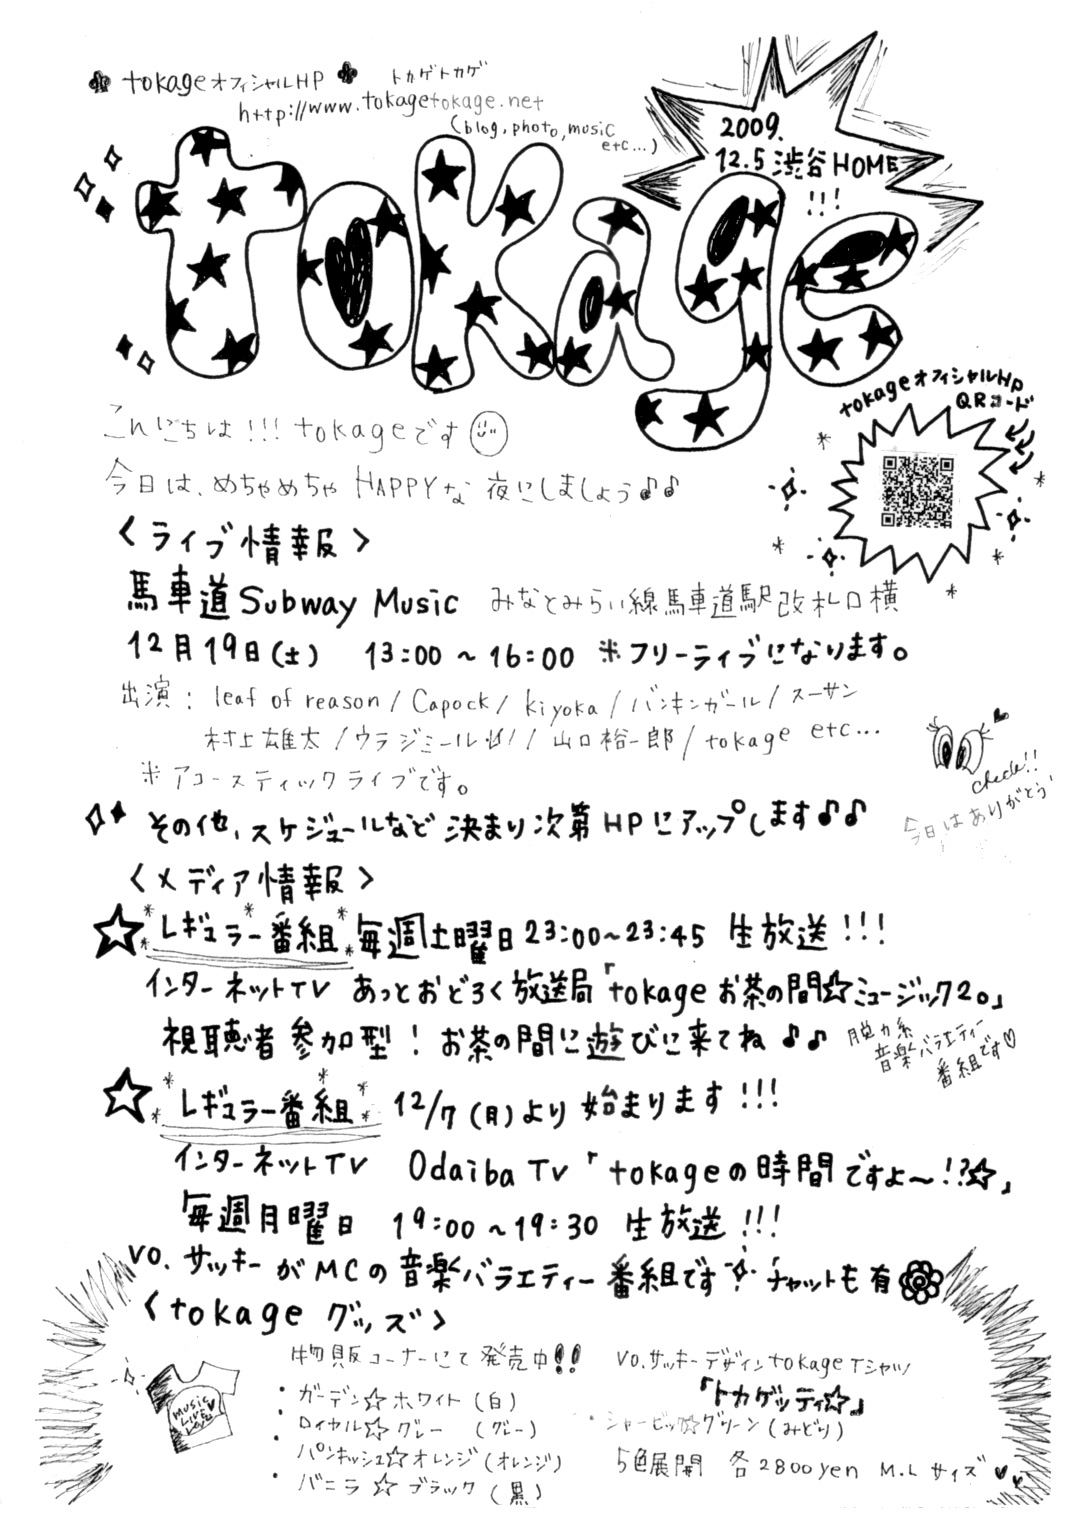 tokageオフィシャルHP
トカゲトカゲ
http://www.tokagetokage.net
(blog, photo, music etc...)
2009.
12.5 渋谷HOME
!!!
tokage
tokageオフィシャルHP
QRコード
こんにちは!!! tokageです
今日は、めちゃめちゃ HAPPYな 夜にしましょう♪♪
<ライブ情報>
馬車道Subway Music みなとみらい線馬車道駅改札口横
12月19日(土) 13:00~16:00 ※フリーライブになります。
出演: leaf of reason / Capock / kiyoka / バンキンガール / スーサン
村上雄太 / ウラジミール / 山口裕一郎 / tokage etc...
※アコースティックライブです。
check!!
今日はありがとう
その他、スケジュールなど 決まり次第 HPにアップします♪♪
<メディア情報>
☆*レギュラー番組* 毎週土曜日23:00~23:45 生放送!!!
インターネットTV あっとおどろく放送局「tokageお茶の間☆ミュージック20」
視聴者参加型! お茶の間に遊びに来てね♪♪
脱力系
音楽バラエティー
番組です♡
☆*レギュラー番組* 12/7(月)より 始まります!!!
インターネットTV Odaiba TV「tokageの時間ですよ~!?☆」
毎週月曜日 19:00~19:30 生放送!!!
vo.サッキーがMCの音楽バラエティー番組です チャットも有
<tokage グッズ>
物販コーナーにて発売中!!
vo.サッキーデザインtokageTシャツ
「トカゲッティ☆」
MUSIC
LIKE
・ガーデン☆ホワイト(白)
・ロイヤル☆グレー(グレー)
・パンキッシュ☆オレンジ(オレンジ)
・バニラ☆ブラック(黒)
・シャービック☆グリーン(みどり)
5色展開 各2800yen M.Lサイズ♥♥